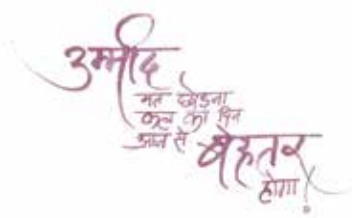 उम्मीद
मत छोड़ना
कल का दिन
आज से
बेहतर
होगा!